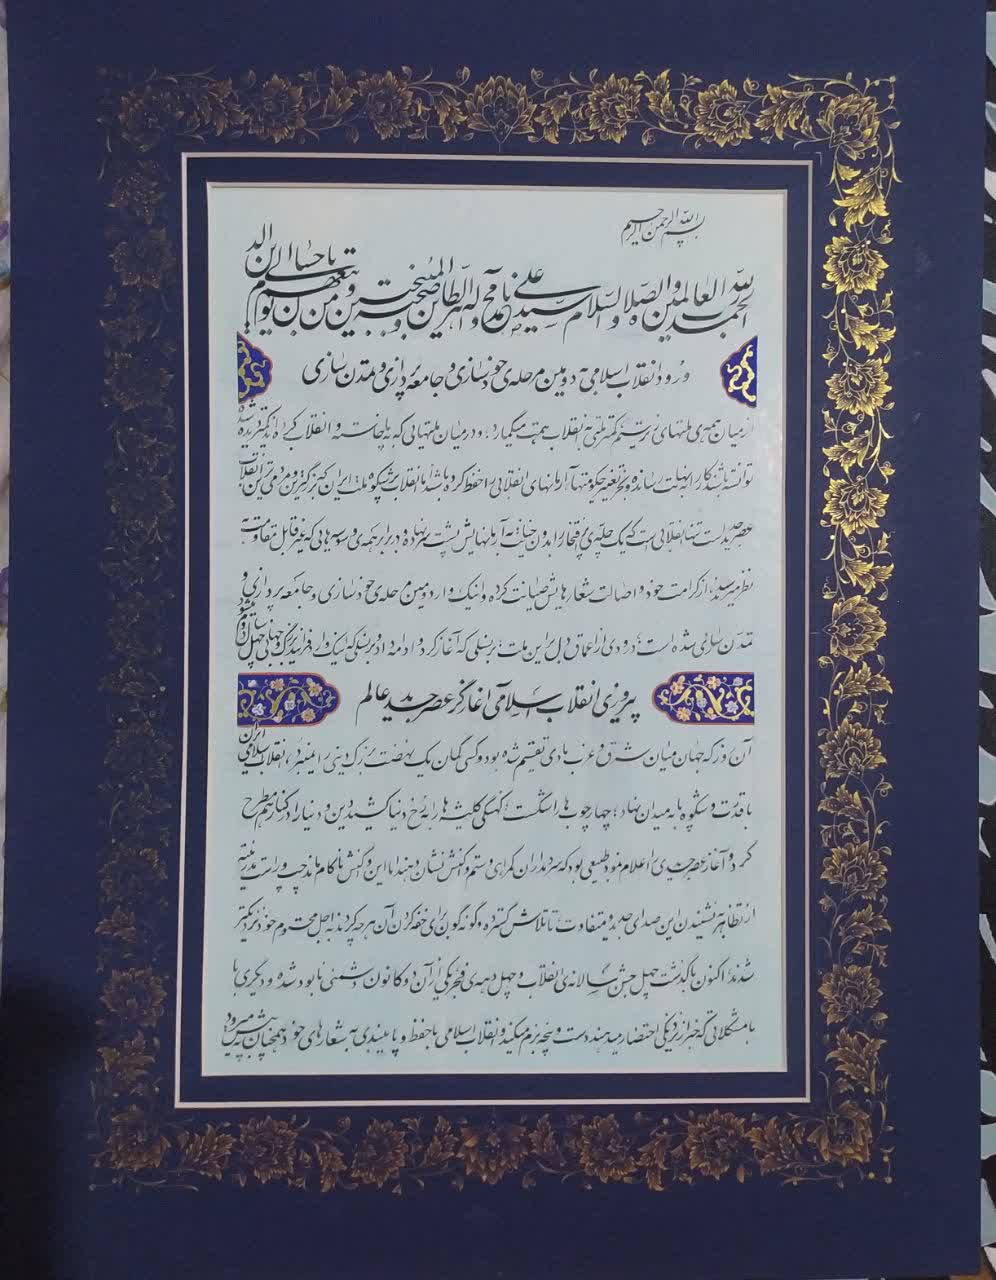 بسم الله الرحمن الرحیم
الحمدلله رب العالمین و الصلاة و السلام علی سیدنا محمد و آله الطاهرین و صحبه المنتجبین و من تبعهم باحسان الی یوم الدین
ورود انقلاب اسلامی به دومین مرحله‌ی خودسازی و جامعه‌پردازی و تمدن‌سازی
از میان همه‌ی ملتهای زیر ستم، کمتر ملتی به انقلاب همت میگمارد؛ و در میان ملتهایی که به پا خاسته و انقلاب کرده‌اند، کمتر دیده شده که
توانسته باشند کار را به نهایت رسانده و به جز تغییر حکومتها، آرمانهای انقلابی را حفظ کرده باشند. اما انقلاب پرشکوه ملت ایران که بزرگترین و مردمی‌ترین انقلاب
عصر جدید است، تنها انقلابی است که یک چله‌ی پرافتخار را بدون خیانت به آرمانهایش پشت سر نهاده و در برابر همه‌ی وسوسه‌هایی که غیر قابل مقاومت به
نظر میرسیدند، از کرامت خود و اصالت شعارهایش صیانت کرده و اینک وارد دومین مرحله‌ی خودسازی و جامعه‌پردازی و
تمدن‌سازی شده است. درودی از اعماق دل بر این ملت؛ بر نسلی که آغاز کرد و ادامه داد و بر نسلی که اینک وارد فرایند بزرگ و جهانی چهل سال دوم میشود
پیروزی انقلاب اسلامی، آغازگر عصر جدید عالم
آن روز که جهان میان شرق و غرب مادی تقسیم شده بود و کسی گمان یک نهضت بزرگ دینی را نمیبرد، انقلاب اسلامی ایران
با قدرت و شکوه پا به میدان نهاد؛ چهارچوب‌ها را شکست؛ کهنگی کلیشه‌ها را به رخ دنیا کشید؛ دین و دنیا را در کنار هم مطرح
کرد و آغاز عصر جدیدی را اعلام نمود. طبیعی بود که سردمداران گمراهی و ستم واکنش نشان دهند، اما این واکنش ناکام ماند. چپ و راست مدرنیته
از تظاهر به نشنیدن این صدای جدید و متفاوت، تا تلاش گسترده و گونه‌گون برای خفه کردن آن، هرچه کردند به اجل محتوم خود نزدیکتر
شدند. اکنون با گذشت چهل جشن سالانه‌ی انقلاب و چهل دهه‌ی فجر، یکی از آن دو کانون دشمنی نابود شده و دیگری با
با مشکلاتی که خبر از نزدیکی احتضار میدهند، دست و پنجه نرم میکند و انقلاب اسلامی با حفظ و پایبندی به شعارهای خود همچنان به پیش میرود